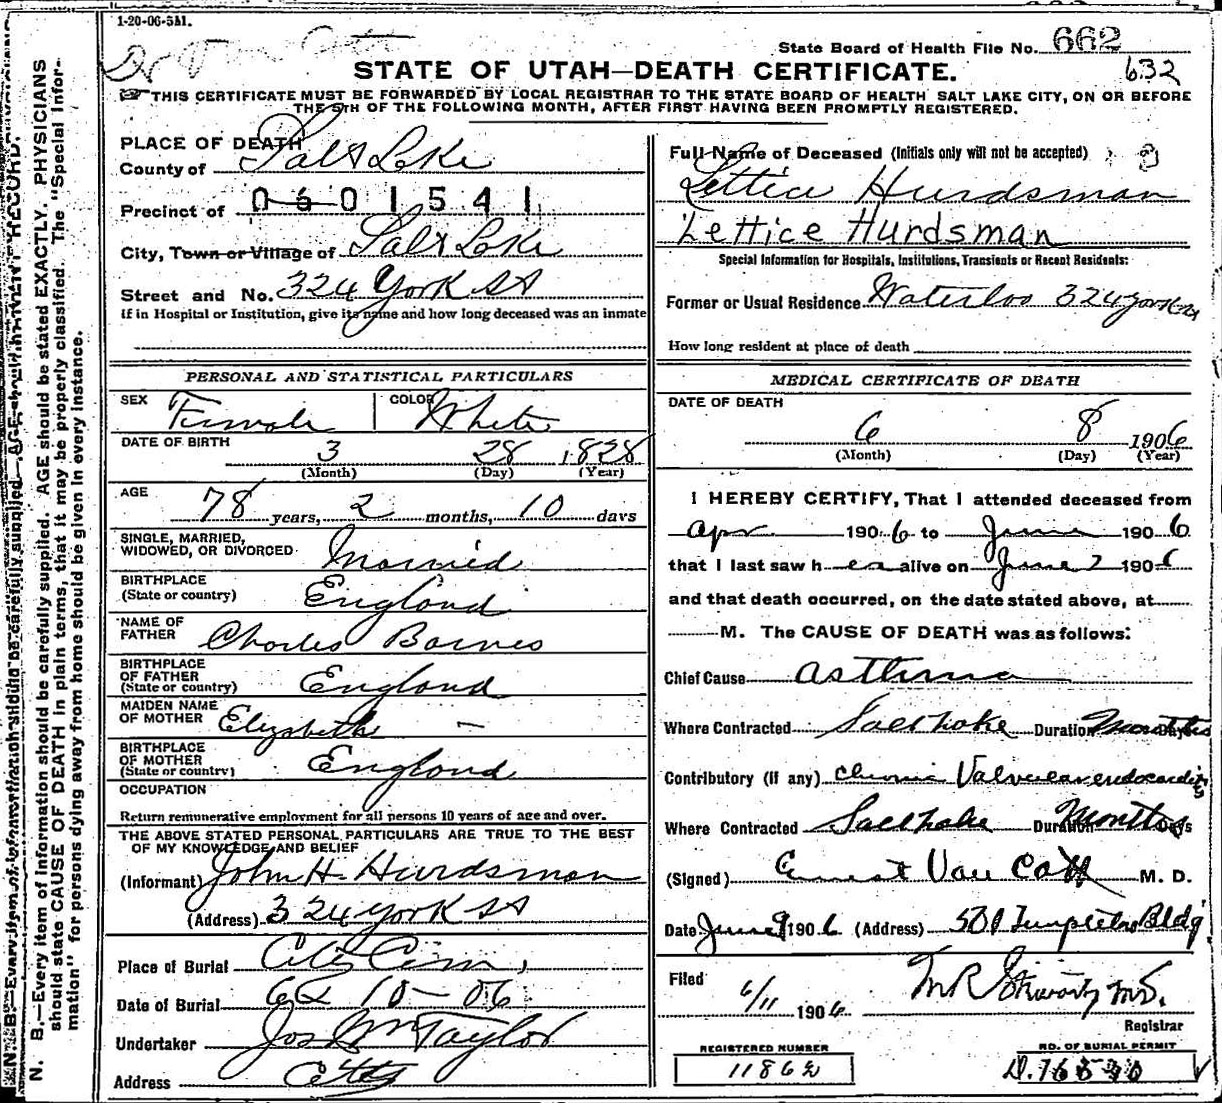 1-20-06-5M.
Dr Van Cott
State Board of Health File No. 662
632
STATE OF UTAH—DEATH CERTIFICATE.
THIS CERTIFICATE MUST BE FORWARDED BY LOCAL REGISTRAR TO THE STATE BOARD OF HEALTH SALT LAKE CITY, ON OR BEFORE
THE 5TH OF THE FOLLOWING MONTH, AFTER FIRST HAVING BEEN PROMPTLY REGISTERED.
N. B.—Every item of information should be carefully supplied. AGE should be stated EXACTLY. PHYSICIANS
should state CAUSE OF DEATH in plain terms, that it may be properly classified. The "Special Infor-
mation" for persons dying away from home should be given in every instance.
PLACE OF DEATH
County of Salt Lake
Precinct of 0601541
City, Town or Village of Salt Lake
Street and No. 324 York St
if in Hospital or Institution, give its name and how long deceased was an inmate
PERSONAL AND STATISTICAL PARTICULARS
SEX Female COLOR White
DATE OF BIRTH 3 28 1828
(Month) (Day) (Year)
AGE 78 years, 2 months, 10 days
SINGLE, MARRIED,
WIDOWED, OR DIVORCED Married
BIRTHPLACE
(State or country) England
NAME OF
FATHER Charles Barnes
BIRTHPLACE
OF FATHER
(State or country) England
MAIDEN NAME
OF MOTHER Elizabeth —
BIRTHPLACE
OF MOTHER
(State or country) England
OCCUPATION
Return remunerative employment for all persons 10 years of age and over.
THE ABOVE STATED PERSONAL PARTICULARS ARE TRUE TO THE BEST
OF MY KNOWLEDGE AND BELIEF
(Informant) John H. Hurdsman
(Address) 324 York St
Place of Burial City Cem,
Date of Burial 6 10-06
Undertaker Jos Wm Taylor
Address City
Full Name of Deceased (Initials only will not be accepted)
Lettice Hurdsman
Lettice Hurdsman
Special Information for Hospitals, Institutions, Transients or Recent Residents:
Former or Usual Residence Waterloo 324 York St
How long resident at place of death
MEDICAL CERTIFICATE OF DEATH
DATE OF DEATH
6 8 1906
(Month) (Day) (Year)
I HEREBY CERTIFY, That I attended deceased from
Apr 1906 to June 1906
that I last saw her alive on June 7 1906
and that death occurred, on the date stated above, at
M. The CAUSE OF DEATH was as follows:
Chief Cause Asthma
Where Contracted Salt Lake Duration Months Days
Contributory (if any) Chronic Valvular endocarditis
Where Contracted Salt Lake Duration Months Days
(Signed) Ernest Van Cott M. D.
Date June 9 1906 (Address) 501 Templeton Bldg
Filed 6/11 1906
Registrar
REGISTERED NUMBER
NO. OF BURIAL PERMIT